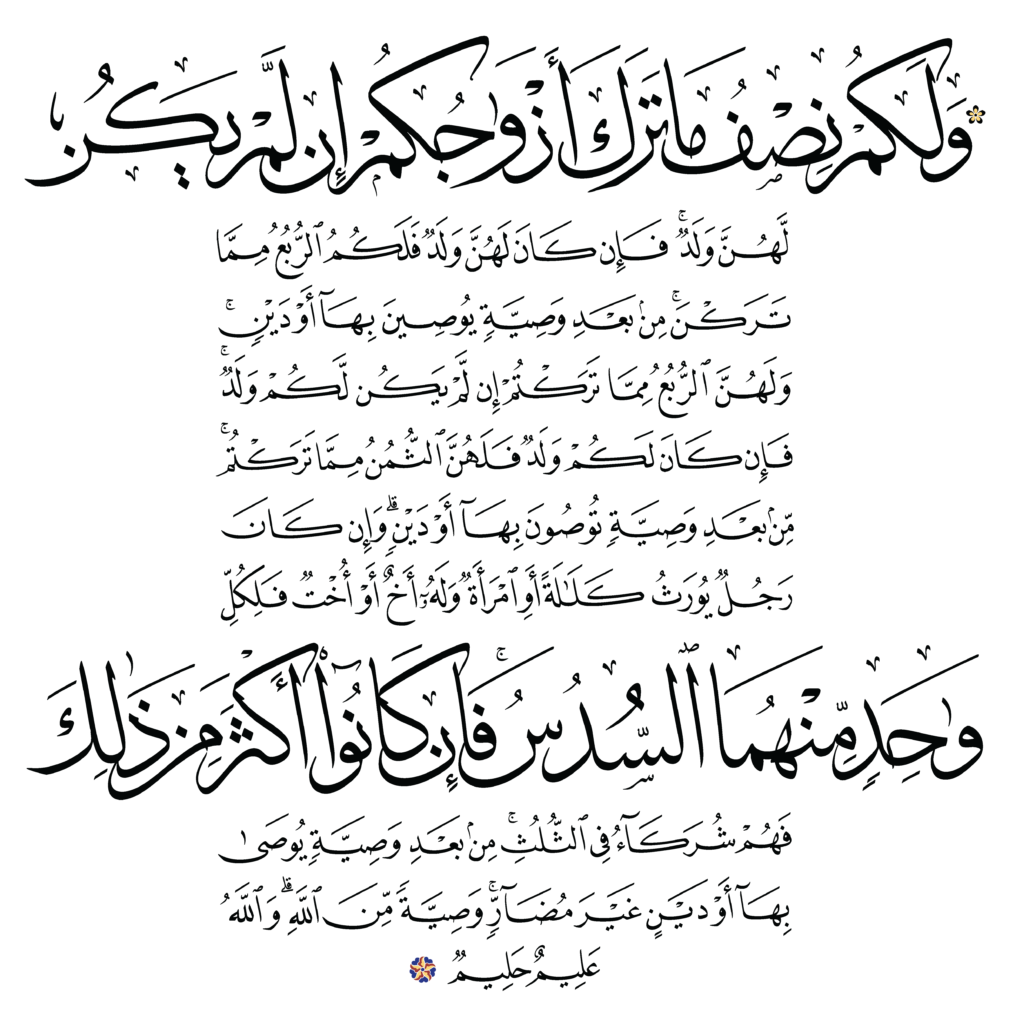 وَلَكُمْ نِصْفُ مَا تَرَكَ أَزْوَٰجُكُمْ إِن لَّمْ يَكُن
لَّهُنَّ وَلَدٌ ۚ فَإِن كَانَ لَهُنَّ وَلَدٌ فَلَكُمُ ٱلرُّبُعُ مِمَّا
تَرَكْنَ ۚ مِنۢ بَعْدِ وَصِيَّةٍ يُوصِينَ بِهَآ أَوْ دَيْنٍ ۚ
وَلَهُنَّ ٱلرُّبُعُ مِمَّا تَرَكْتُمْ إِن لَّمْ يَكُن لَّكُمْ وَلَدٌ ۚ
فَإِن كَانَ لَكُمْ وَلَدٌ فَلَهُنَّ ٱلثُّمُنُ مِمَّا تَرَكْتُم ۚ
مِّنۢ بَعْدِ وَصِيَّةٍ تُوصُونَ بِهَآ أَوْ دَيْنٍ ۗ وَإِن كَانَ
رَجُلٌ يُورَثُ كَلَٰلَةً أَوِ ٱمْرَأَةٌ وَلَهُۥٓ أَخٌ أَوْ أُخْتٌ فَلِكُلِّ
وَٰحِدٍ مِّنْهُمَا ٱلسُّدُسُ ۚ فَإِن كَانُوٓا۟ أَكْثَرَ مِن ذَٰلِكَ
فَهُمْ شُرَكَآءُ فِى ٱلثُّلُثِ ۚ مِنۢ بَعْدِ وَصِيَّةٍ يُوصَىٰ
بِهَآ أَوْ دَيْنٍ غَيْرَ مُضَآرٍّ ۚ وَصِيَّةً مِّنَ ٱللَّهِ ۗ وَٱللَّهُ
عَلِيمٌ حَلِيمٌ